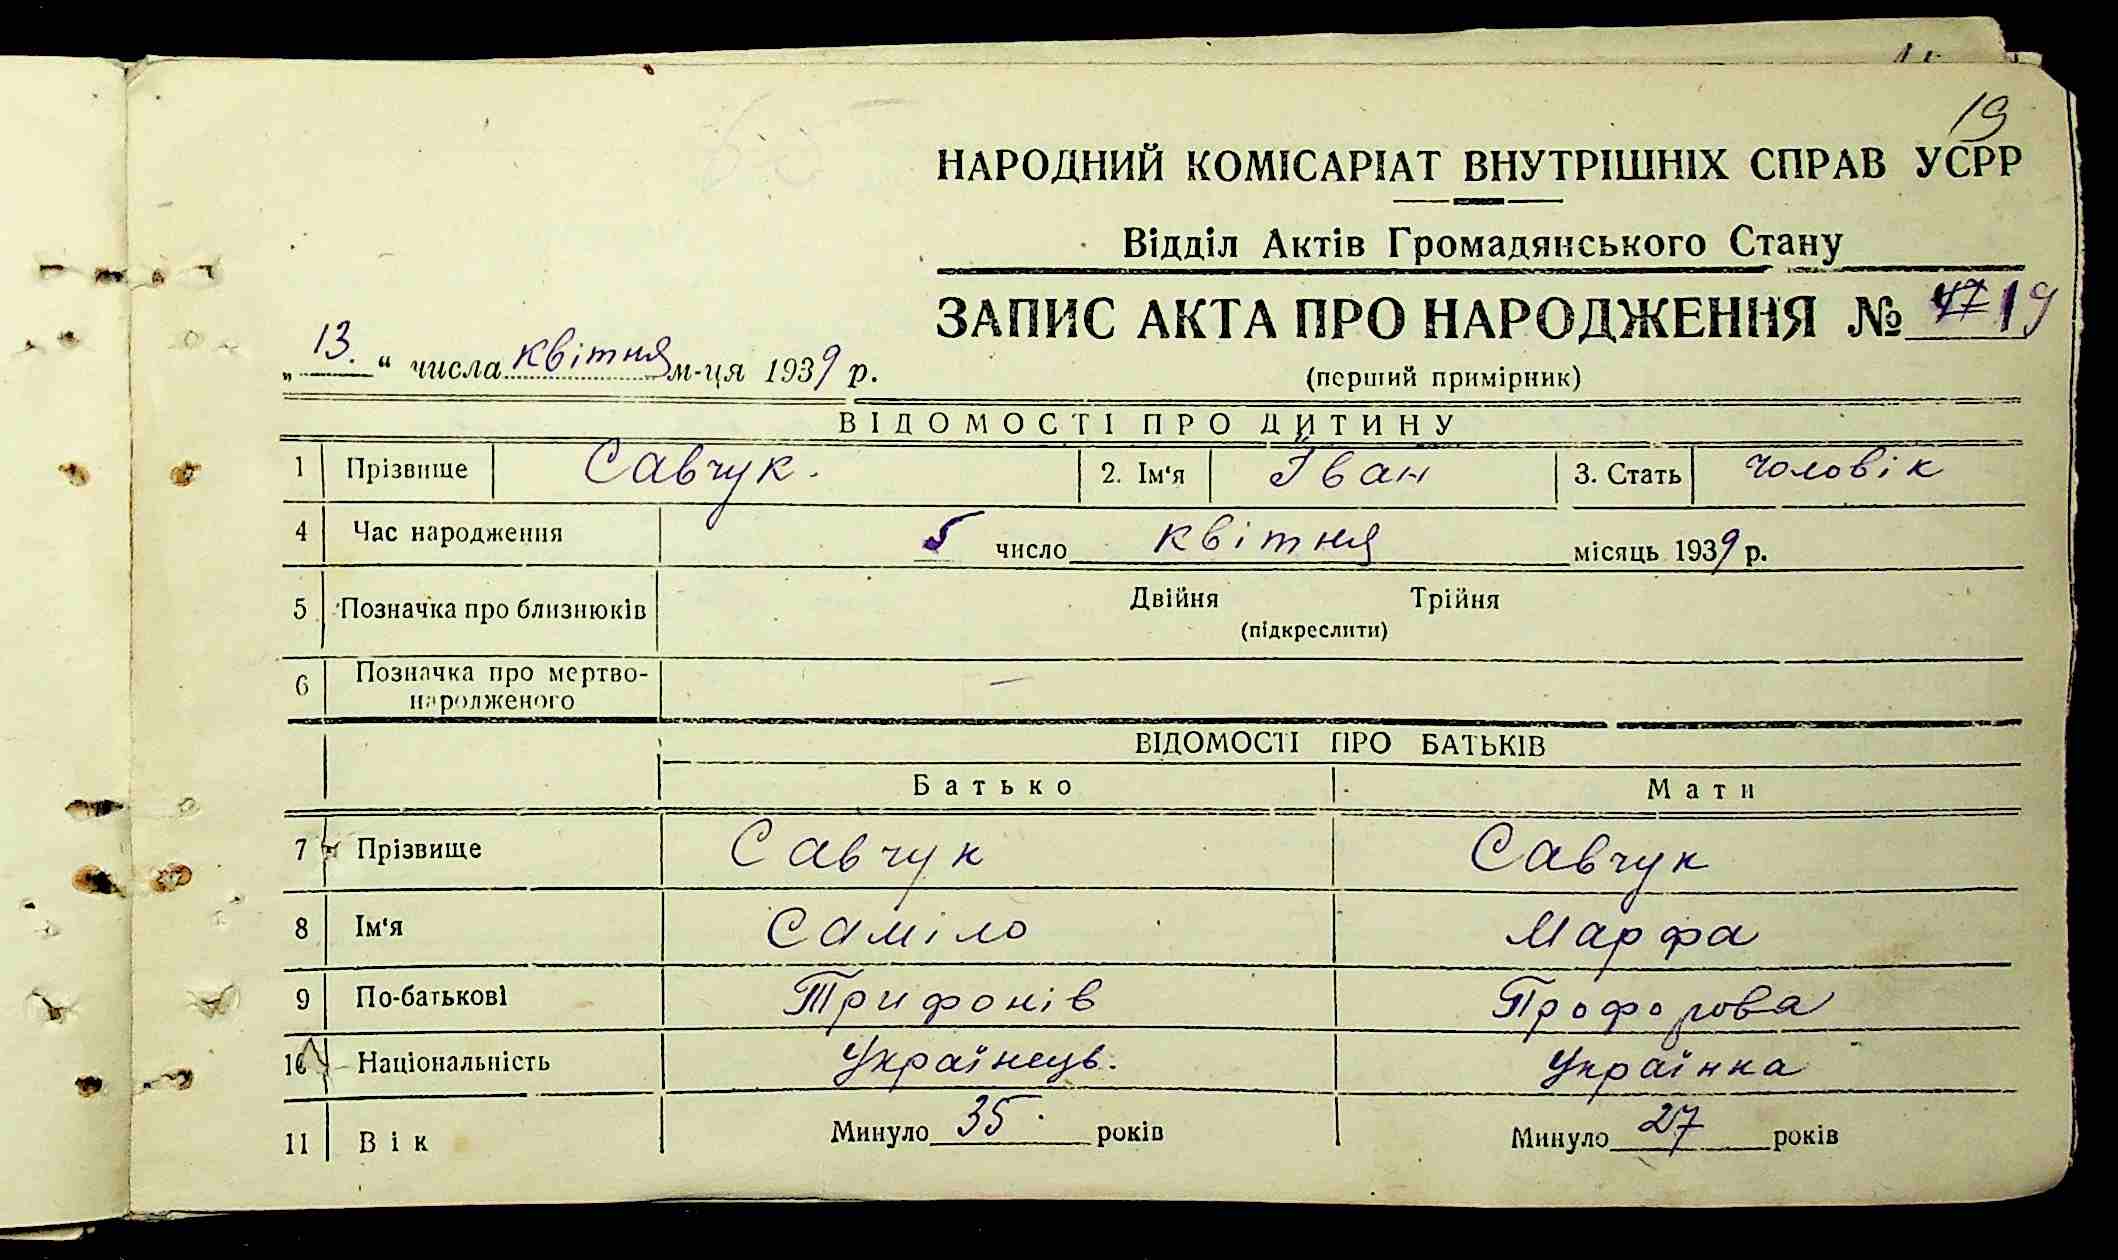 19
НАРОДНИЙ КОМІСАРІАТ ВНУТРІШНІХ СПРАВ УСРР
Відділ Актів Громадянського Стану
ЗАПИС АКТА ПРО НАРОДЖЕННЯ № 19
„13.“ числа квітня м-ця 1939 р.
(перший примірник)
ВІДОМОСТІ ПРО ДИТИНУ
1 Прізвище Савчук. 2. Ім‘я Іван 3. Стать чоловік
4 Час народження 5 число квітня місяць 1939 р.
5 Позначка про близнюків Двійня Трійня
(підкреслити)
6 Позначка про мертво-
народженого —
ВІДОМОСТІ ПРО БАТЬКІВ
Батько Мати
7 Прізвище Савчук Савчук
8 Ім‘я Саміло Марфа
9 По-батькові Трифонів Профорова
10 Національність Українець. Українка
11 Вік Минуло 35 років Минуло 27 років